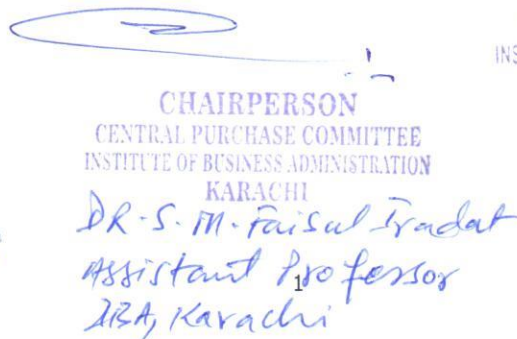 INS
CHAIRPERSON
CENTRAL PURCHASE COMMITTEE
INSTITUTE OF BUSINESS ADMINISTRATION
KARACHI
DR. S. M. Faisal Iradat
Assistant Professor
1
IBA, Karachi